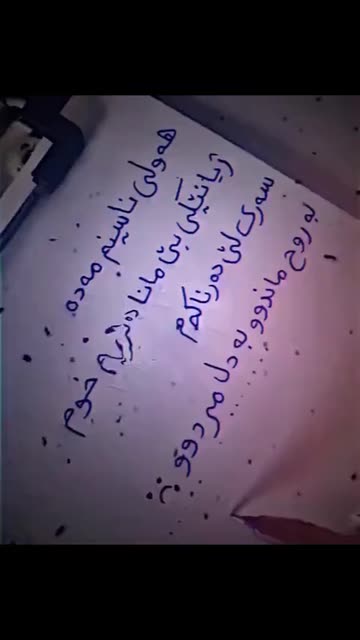 هەولی ناسینم مەدە
ژیانێکی بێ مانا دەژیم خوم
سەری لێ دەرناکەم
بە روح ماندوو بە دل مردوو :(